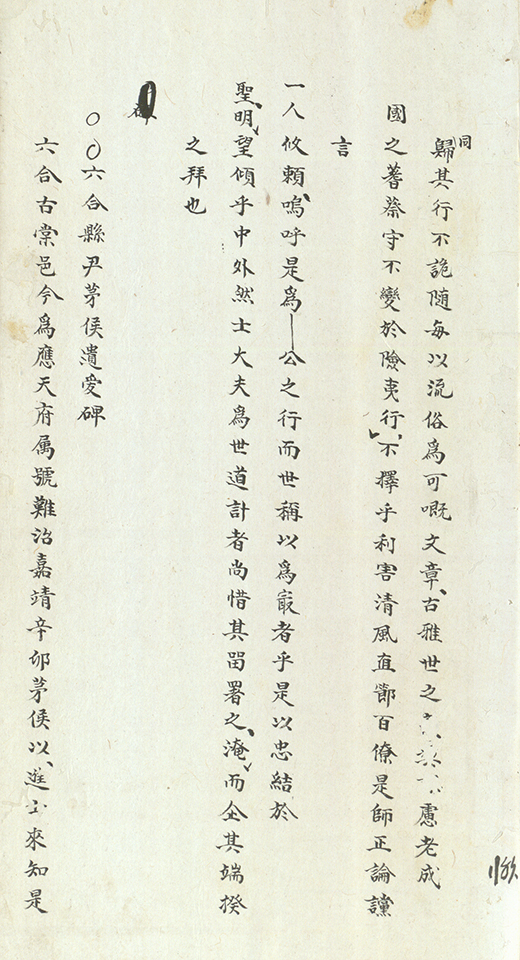 同歸其行不詭随每以流俗為可嘅文章古雅世之慮老成
國之蓍蔡守不變於險夷行不擇乎利害清風直節百僚是師正論讜
言
一人攸頼嗚呼是為公之行而世稱以為㝡者乎是以忠結於
聖明望傾乎中外然士大夫為世道計者尚惜其畱署之淹而仝其端揆
之拜也
○○六合縣尹茅侯遺愛碑
六合古棠邑今為應天府属號難治嘉靖辛卯茅侯以進士來知是